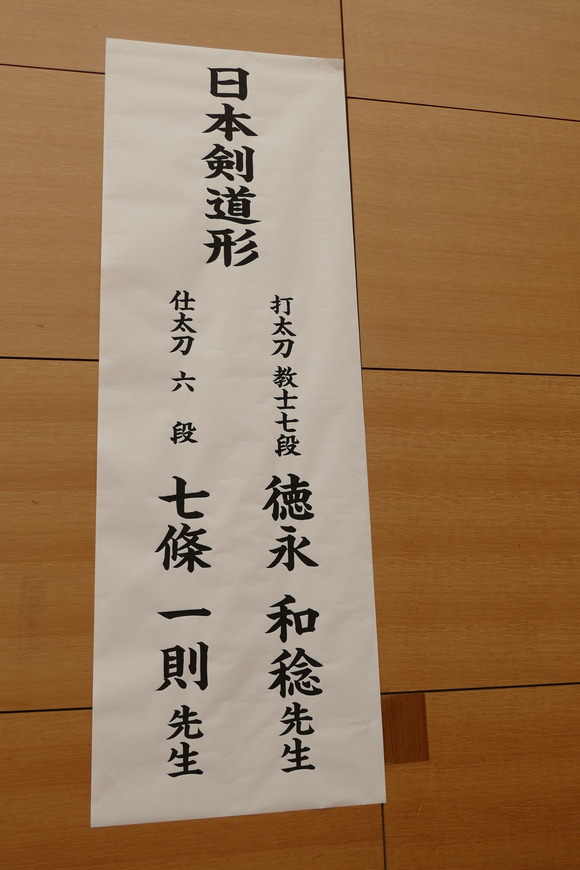 日本剣道形
打太刀 教士七段 徳永 和稔 先生
仕太刀 六 段 七條 一則 先生